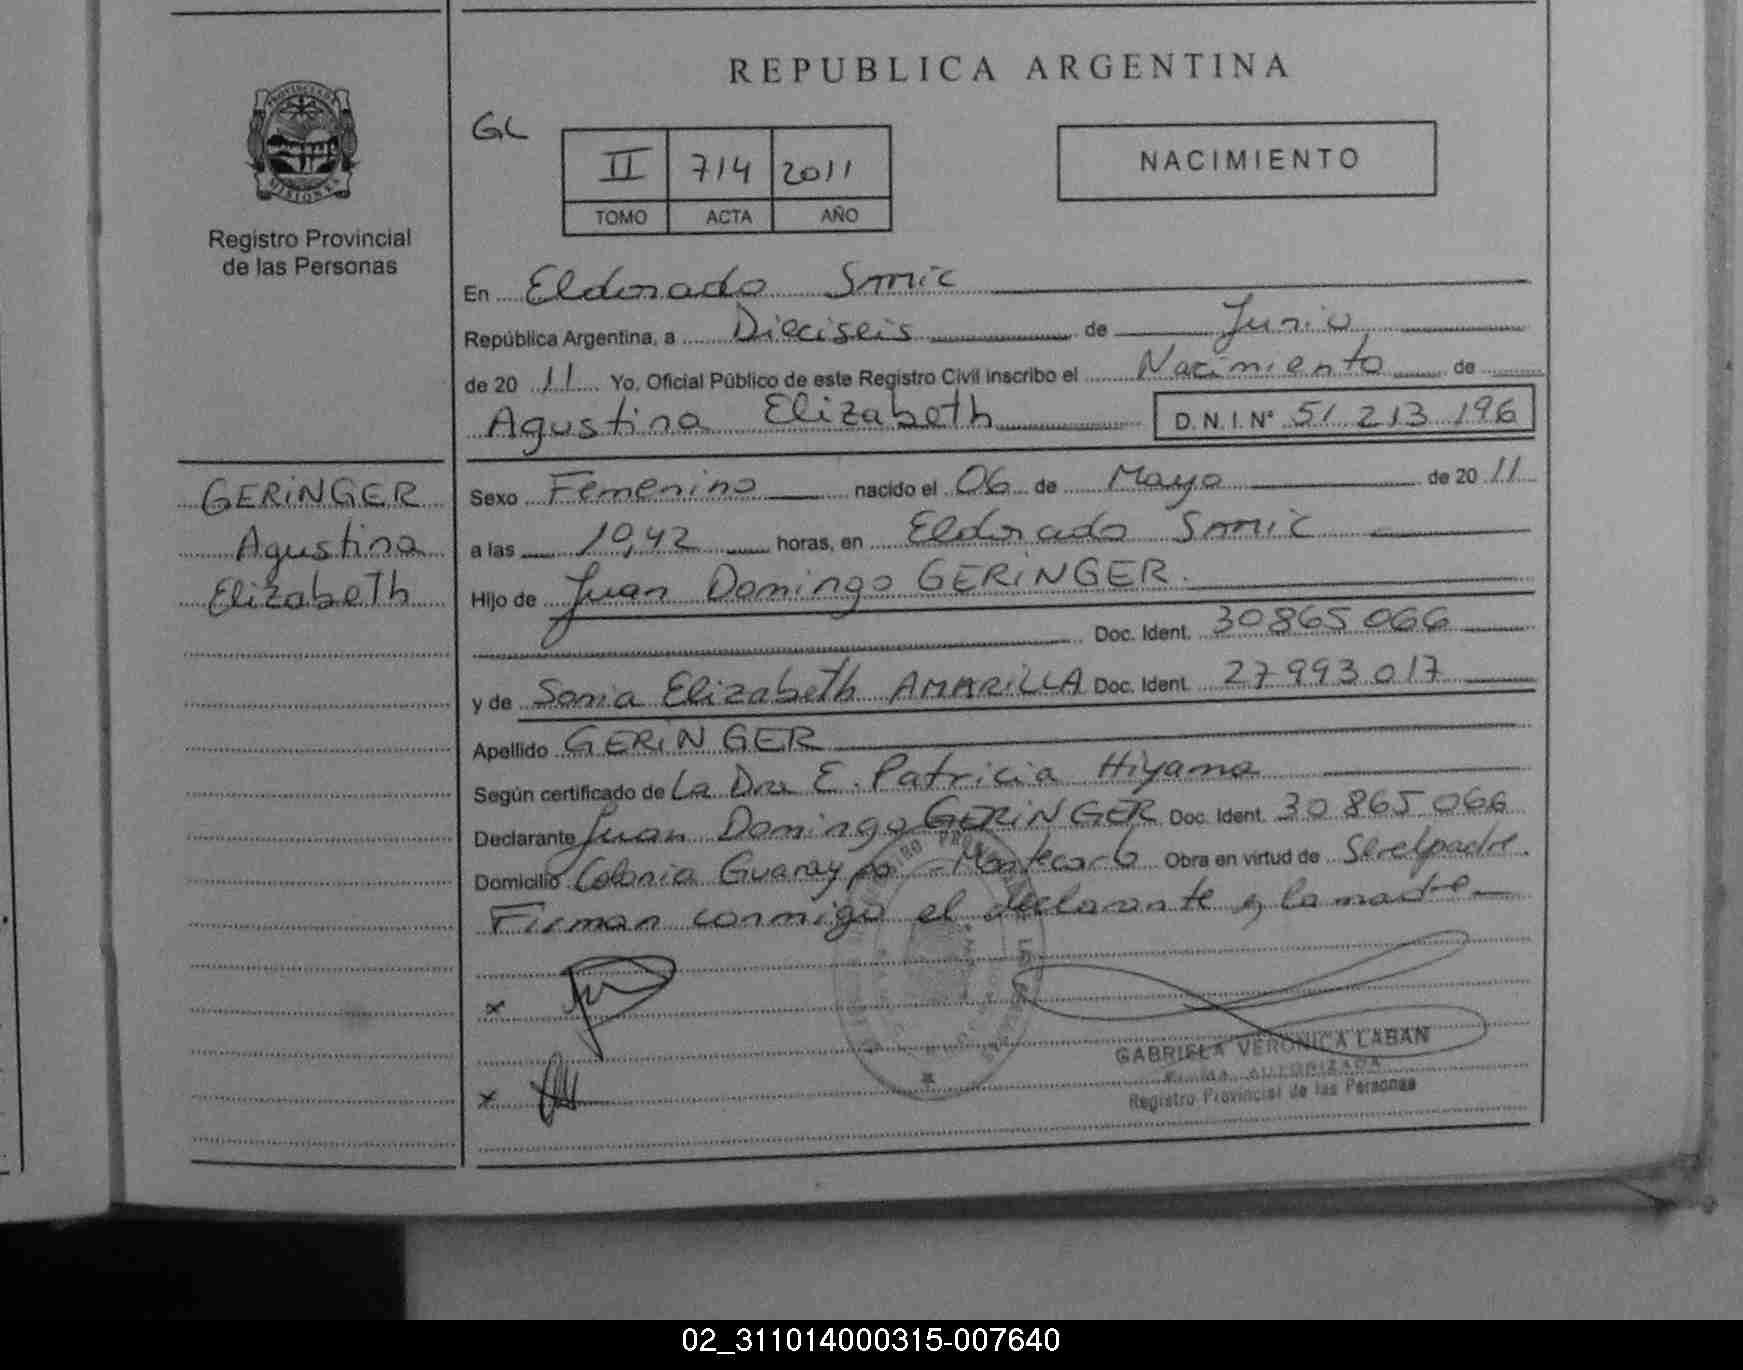 REPUBLICA ARGENTINA
PROVINCIA DE
MISIONES
Registro Provincial
de las Personas
GL
II 714 2011
TOMO ACTA AÑO
NACIMIENTO
En Eldorado Smic
República Argentina, a Dieciseis de Junio
de 20 11 Yo, Oficial Público de este Registro Civil inscribo el Nacimiento de
Agustina Elizabeth D.N.I.Nº 51 213 196
GERiNGER
Agustina
Elizabeth
Sexo Femenino nacido el 06 de Mayo de 20 11
a las 10,42 horas, en Eldorado Smic
Hijo de Juan Domingo GERiNGER.
Doc. Ident. 30865 066
y de Sonia Elizabeth AMARiLLA Doc. Ident. 27 993 017
Apellido GERiNGER
Según certificado de La Dra E. Patricia Hiyama
Declarante Juan Domingo GERiNGER Doc. Ident. 30 865 066
Domicilio Colonia Guaraypo - Montecarlo Obra en virtud de Ser el padre.
Firman conmigo el declarante y la madre
x
x
GABRIELA VERONICA LABAN
FIRMA AUTORIZADA
Registro Provincial de las Personas
02_311014000315-007640